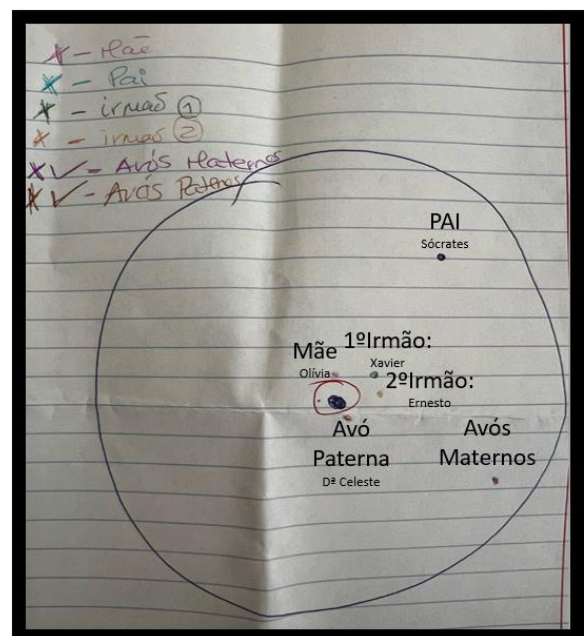 * - Mãe
* - Pai
* - irmão ①
* - irmão ②
X ✓ - Avós Maternos
X ✓ - Avós Paternos
PAI
Sócrates
1ºIrmão:
Xavier
Mãe
Olívia
2ºIrmão:
Ernesto
Avó
Paterna
Dª Celeste
Avós
Maternos